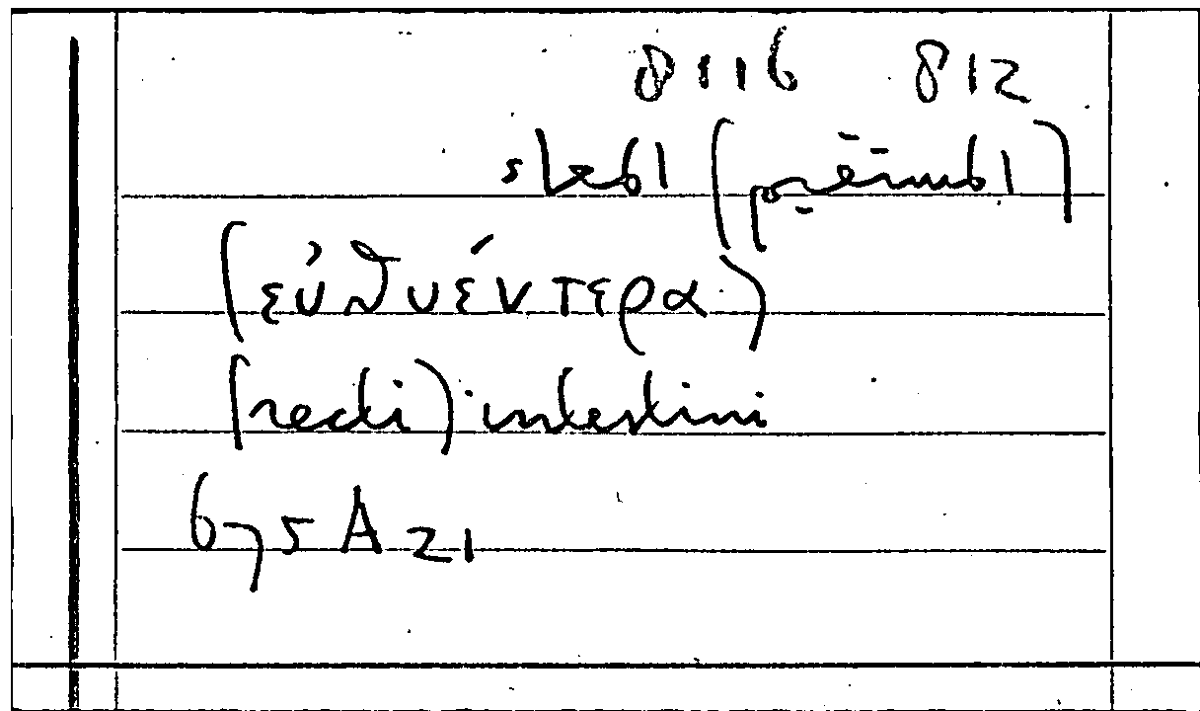 8116 812
(εὐθυέντερα)
(recti) intestini
675 A 21